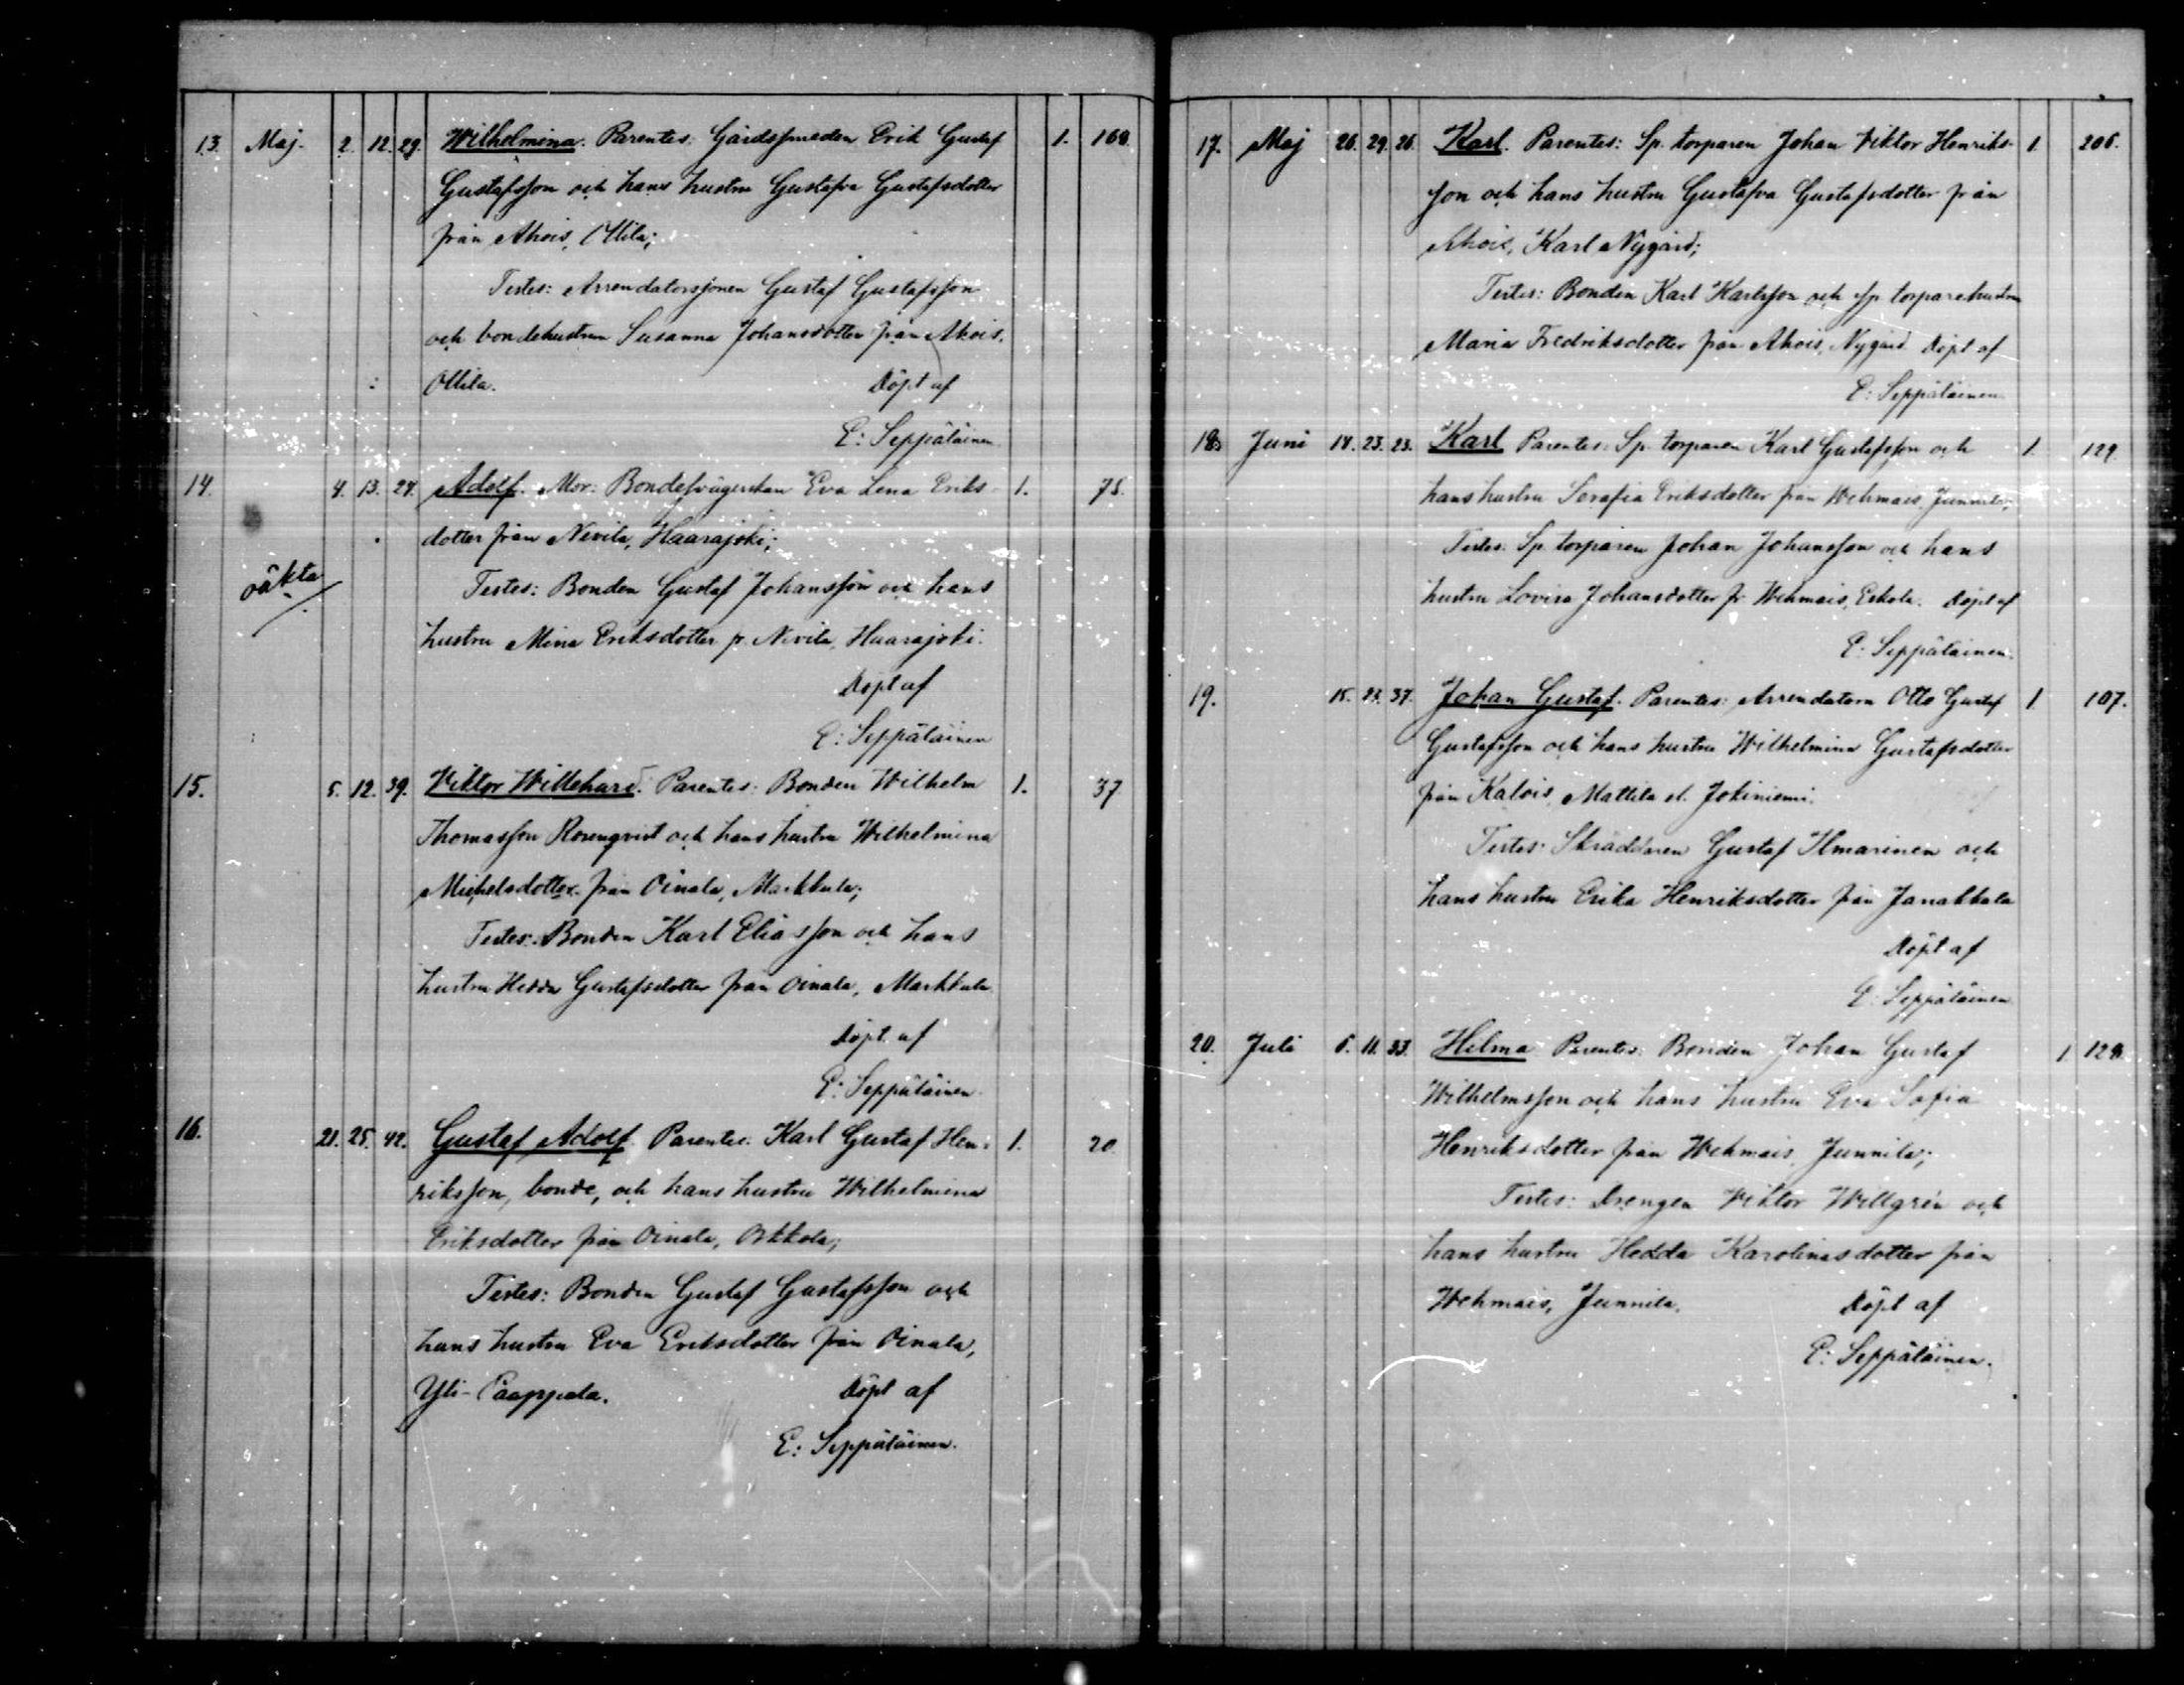 13. Maj. 2. 12. 29. Wilhelmina. Parentes: Gårdssmeden Erik Gustaf 1. 160.
Gustafsson och hans hustru Gustafva Gustafsdotter
från Ahois, Ollila;
Testes: Arrendatorssonen Gustaf Gustafsson
och bondehustrun Susanna Johansdotter från Ahois,
Ollila. Döpt af
E: Seppäläinen
14. 4. 13. 24. Adolf. Mor: Bondesvägerskan Eva Lena Eriks- 1. 75.
dotter från Nevila, Haarajoki;
oäkta
Testes: Bonden Gustaf Johansson och hans
hustru Mina Eriksdotter fr. Nevila, Haarajoki.
Döpt af
E: Seppäläinen
15. 5. 12. 39. Viktor Willehard. Parentes: Bonden Wilhelm 1. 37
Thomasson Rosenqvist och hans hustru Wilhelmina
Michelsdotter från Oinala, Markkula;
Testes: Bonden Karl Eliasson och hans
hustru Hedda Gustafsdotter från Oinala, Markkula
Döpt af
E: Seppäläinen.
16. 21. 25. 42. Gustaf Adolf. Parentes: Karl Gustaf Hen- 1. 20.
riksson, bonde, och hans hustru Wilhelmina
Eriksdotter från Oinala, Orkkola;
Testes: Bonden Gustaf Gustafsson och
hans hustru Eva Eriksdotter från Oinala,
Yli-Caappala. Döpt af
E: Seppäläinen.
17. Maj 26. 29. 26. Karl. Parentes: Sp. torparen Johan Viktor Henriks- 1. 206.
son och hans hustru Gustafva Gustafsdotter från
Ahois, Karl Nygård;
Testes: Bonden Karl Karlsson och Sp torparehustrun
Maria Fredriksdotter från Ahois, Nygård Döpt af
E: Seppäläinen
18. Juni 18. 23. 23. Karl Parentes: Sp. torparen Karl Gustafsson och 1. 129.
hans hustru Serafia Eriksdotter från Wehmais, Junnila;
Testes: Sp. torparen Johan Johansson och hans
hustru Lovisa Johansdotter fr. Wehmais, Eskola. Döpt af
E: Seppäläinen.
19. 15. 23. 37. Johan Gustaf. Parentes: Arrendatorn Otto Gustaf 1. 107.
Gustafsson och hans hustru Wilhelmina Gustafsdotter
från Kalois, Mattila el. Jokiniemi.
Testes: Skräddaren Gustaf Ilmarinen och
hans hustru Erika Henriksdotter från Janakkala
Döpt af
E: Seppäläinen
20. Juli 6. 11. 33. Helma Parentes: Bonden Johan Gustaf 1 129.
Wilhelmsson och hans hustru Eva Sofia
Henriksdotter från Wehmais, Junnila;
Testes: Drengen Viktor Willgrén och
hans hustru Hedda Karolinasdotter från
Wehmais, Junnila. Döpt af
E: Seppäläinen.